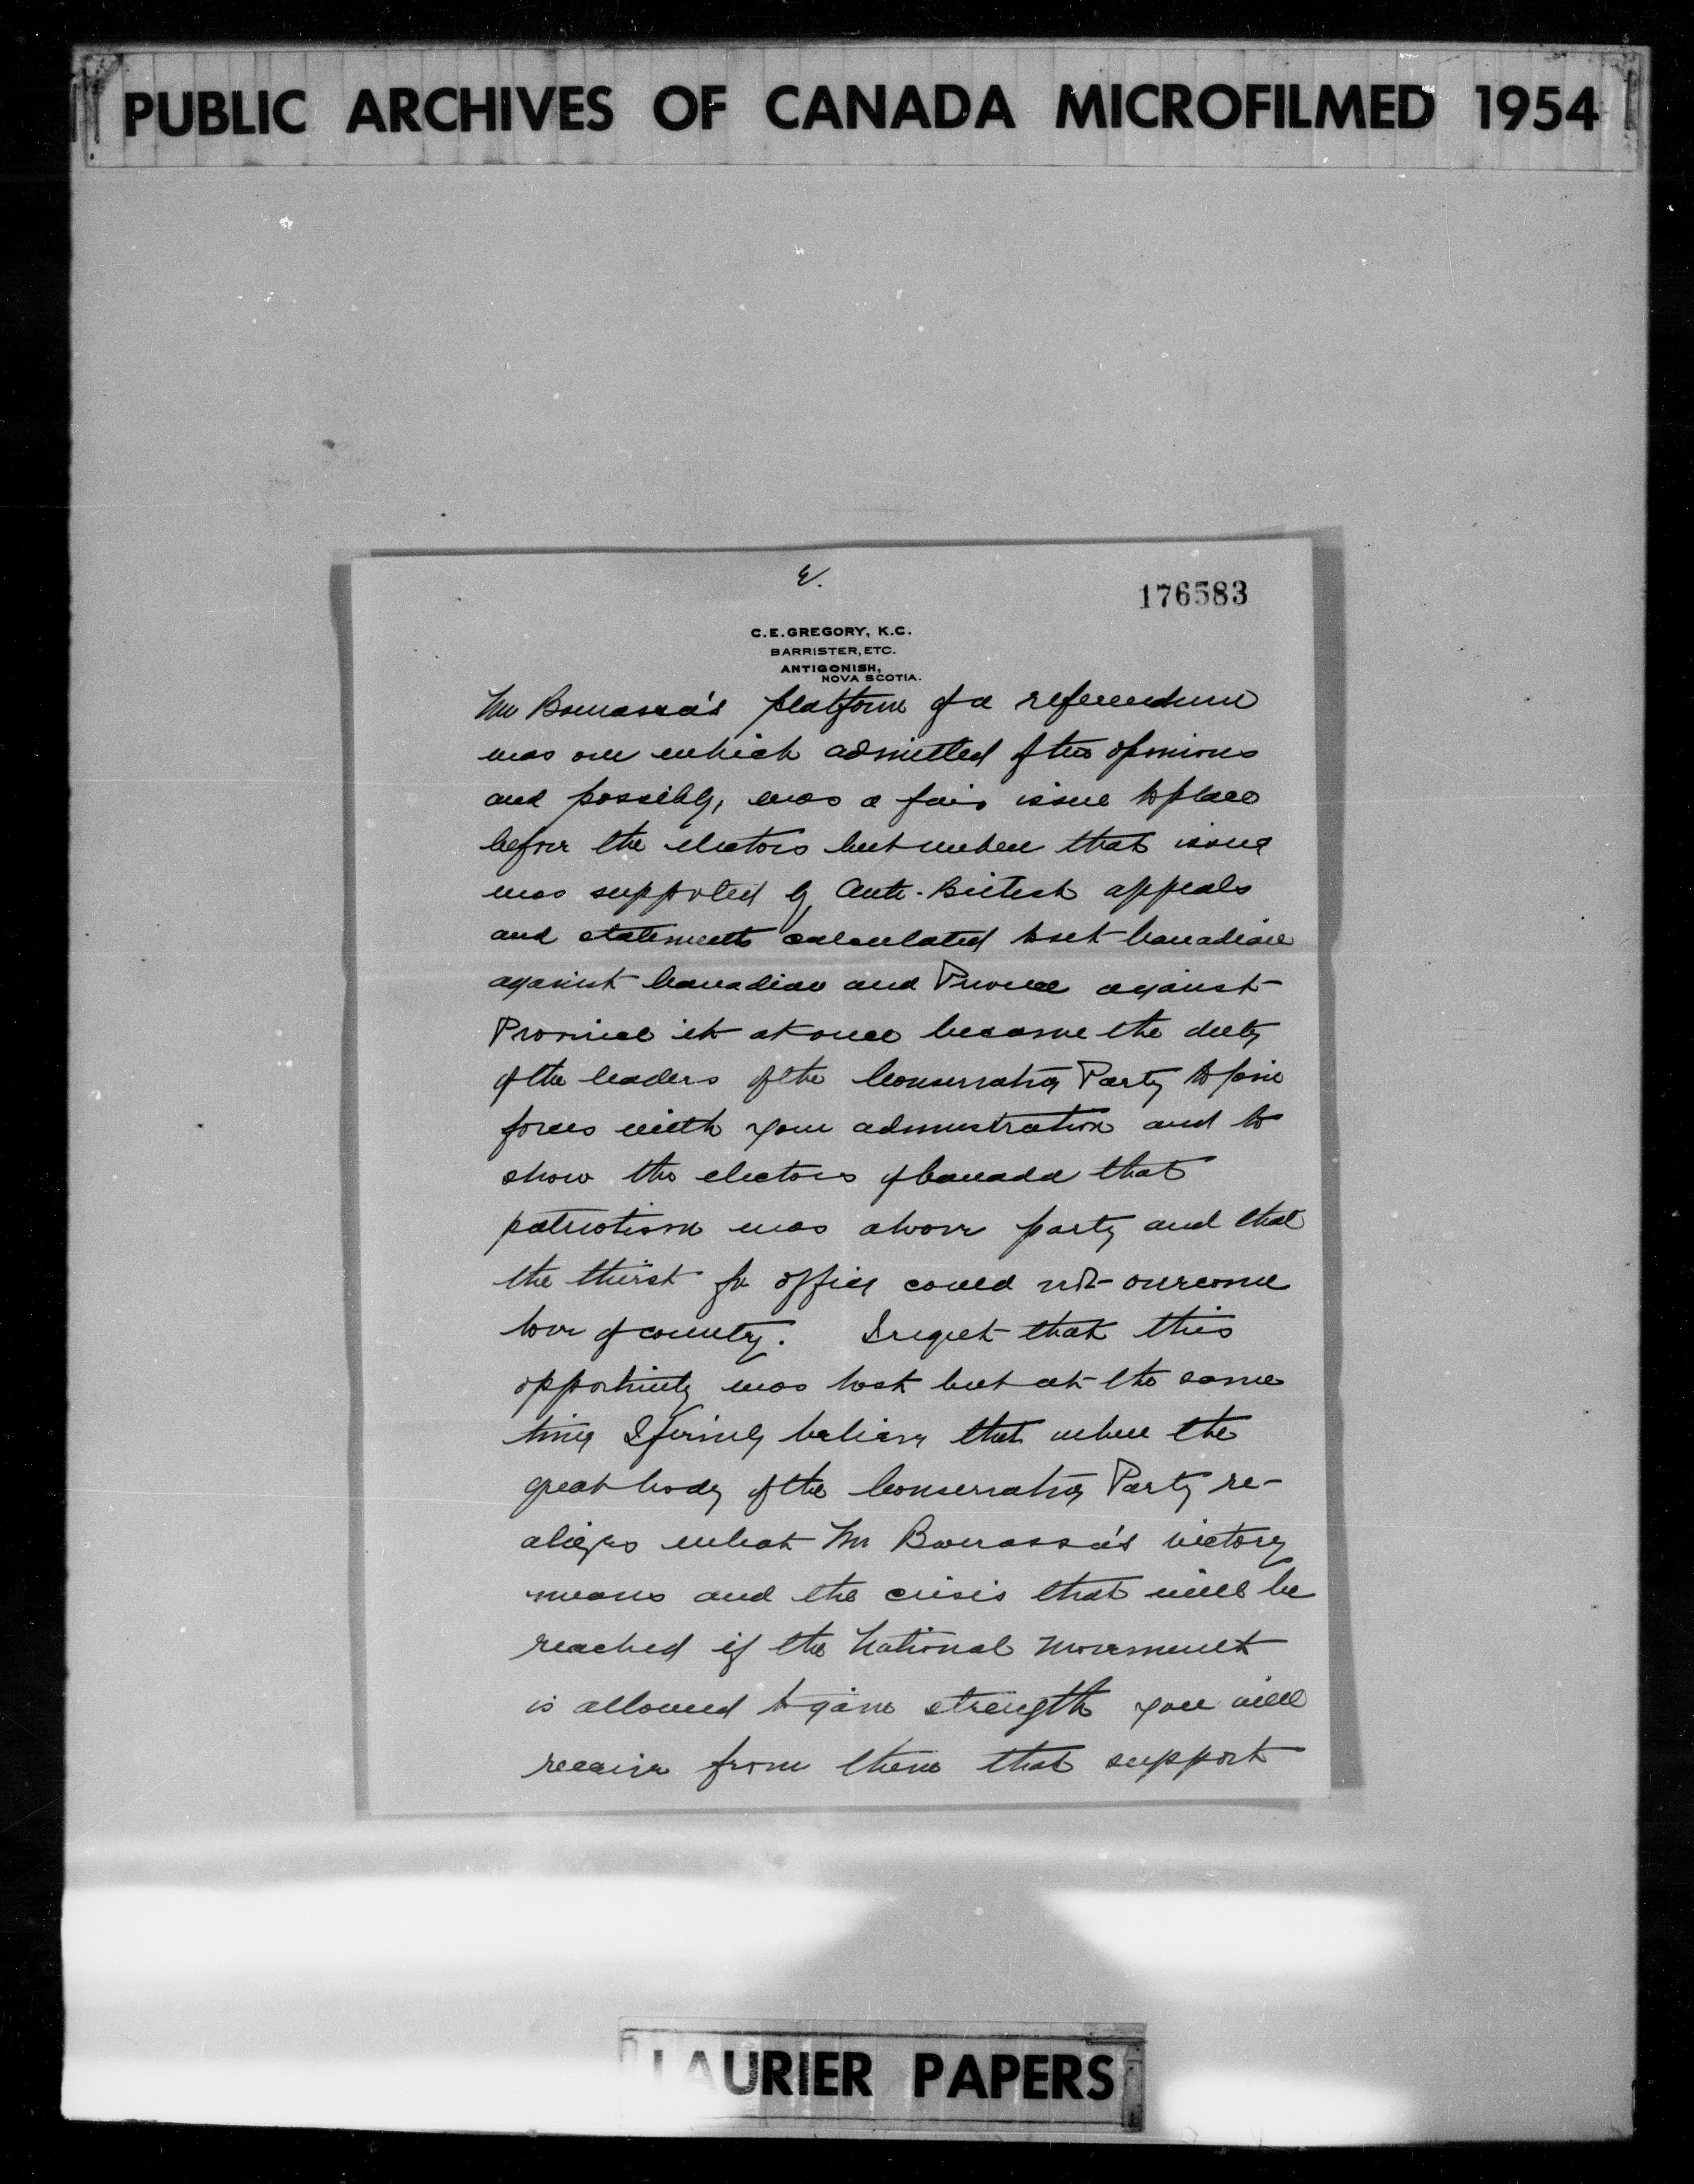 PUBLIC ARCHIVES OF CANADA MICROFILMED 1954
176583
C.E. GREGORY, K.C.
BARRISTER, ETC.
ANTIGONISH,
NOVA SCOTIA.
Mr Bourassa's platform of a referendum
was one which admitted of two opinions
and possibly, was a fair issue to place
before the electors but when that issue
was supported by Anti-British appeals
and statements calculated to set Canadian
against Canadian and Province against
Province it at once became the duty
of the leaders of the Conservative Party to join
forces with your administration and to
show the electors of Canada that
patriotism was above party and that
the thirst for office could not overcome
love of country. I regret that this
opportunity was lost but at the same
time I firmly believe that when the
great body of the Conservative Party re-
alizes what Mr Bourassa's victory
means and the crisis that will be
reached if the National Movement
is allowed to gain strength you will
receive from them that support
LAURIER PAPERS